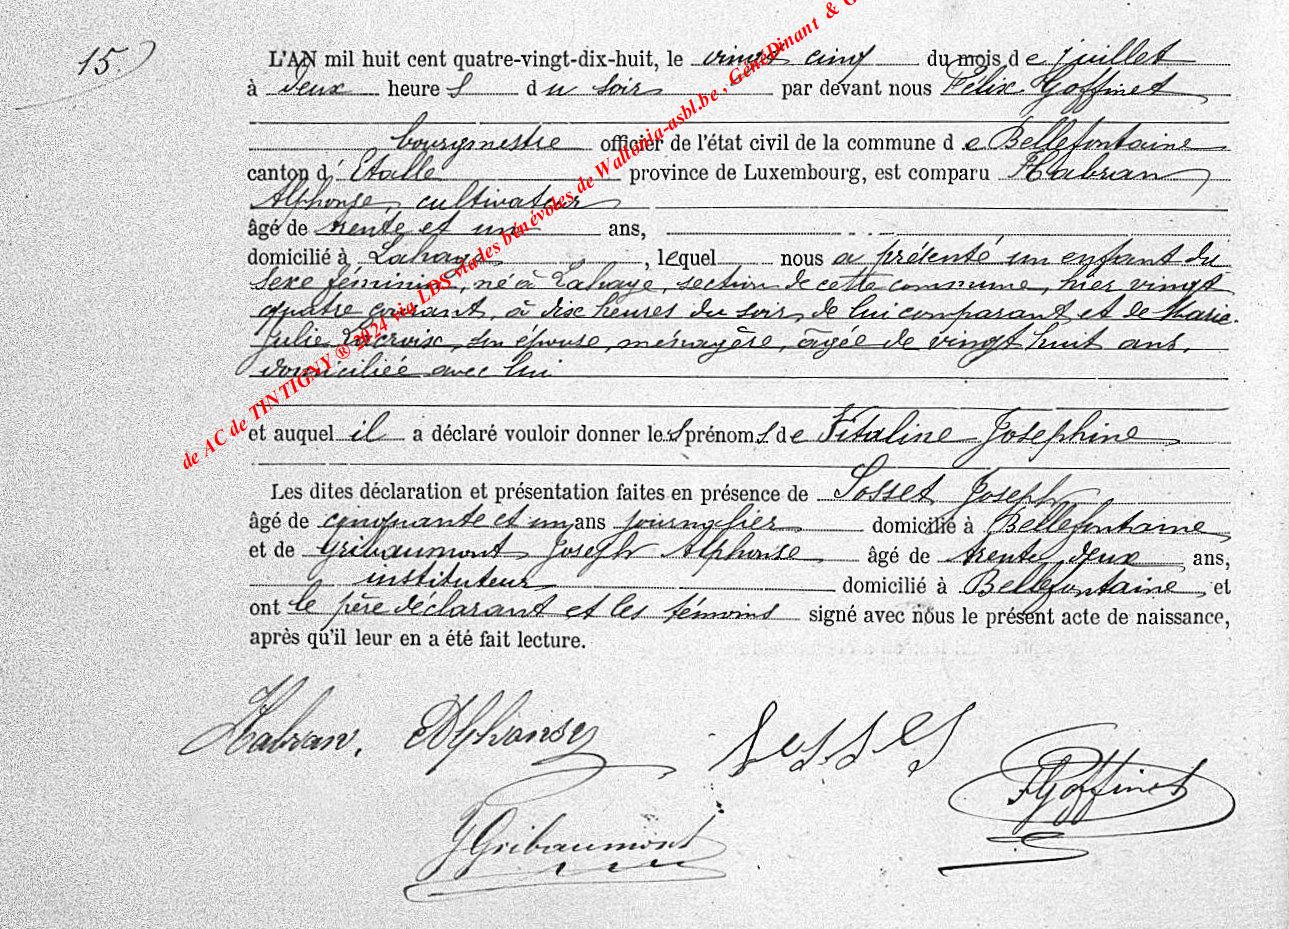 15.
L'AN mil huit cent quatre-vingt-dix-huit, le vingt cinq du mois de juillet
à deux heures du soir par devant nous Félix Goffinet
bourgmestre officier de l'état civil de la commune de Bellefontaine
canton d'Etalle province de Luxembourg, est comparu Habran
Alphonse, cultivateur
âgé de trente et un ans,
domicilié à Lahage, lequel nous a présenté un enfant du
sexe féminin, né à Lahage, section de cette commune, hier vingt
quatre courant, à dix heures du soir, de lui comparant et de Marie
Julie Lacroix, son épouse, ménagère, âgée de vingt huit ans,
domiciliée avec lui
et auquel il a déclaré vouloir donner les prénoms de Vitaline Josephine
Les dites déclaration et présentation faites en présence de Sosset Joseph
âgé de cinquante et un ans journalier domicilié à Bellefontaine
et de Gribaumont Joseph Alphonse âgé de trente deux ans,
instituteur domicilié à Bellefontaine et
ont le père déclarant et les témoins signé avec nous le présent acte de naissance,
après qu'il leur en a été fait lecture.
Habran. Alphonse
FGoffinet
JGribaumont
de AC de TINTIGNY ® 2024 via LDS via les bénévoles de Wallonia-asbl.be , GénéDinant &